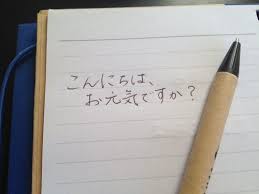 こんにちは、
お元気ですか？